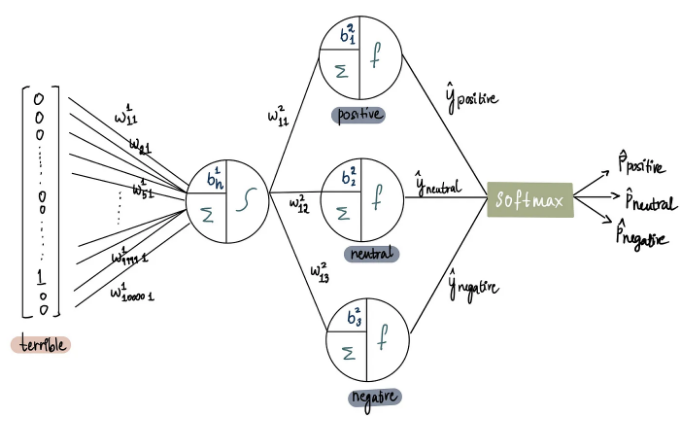 0
0
0
0
0
1
0
0
terrible
w¹₁₁
w₂₁
w¹₅₁
w¹₉₉₉₉ ₁
w¹₁₀₀₀₀ ₁
b¹ₕ
Σ
w²₁₁
w²₁₂
w²₁₃
b²₁
Σ f
positive
b²₂
Σ f
neutral
b²₃
Σ f
negative
ŷpositive
ŷneutral
ŷnegative
Softmax
p̂positive
p̂neutral
p̂negative